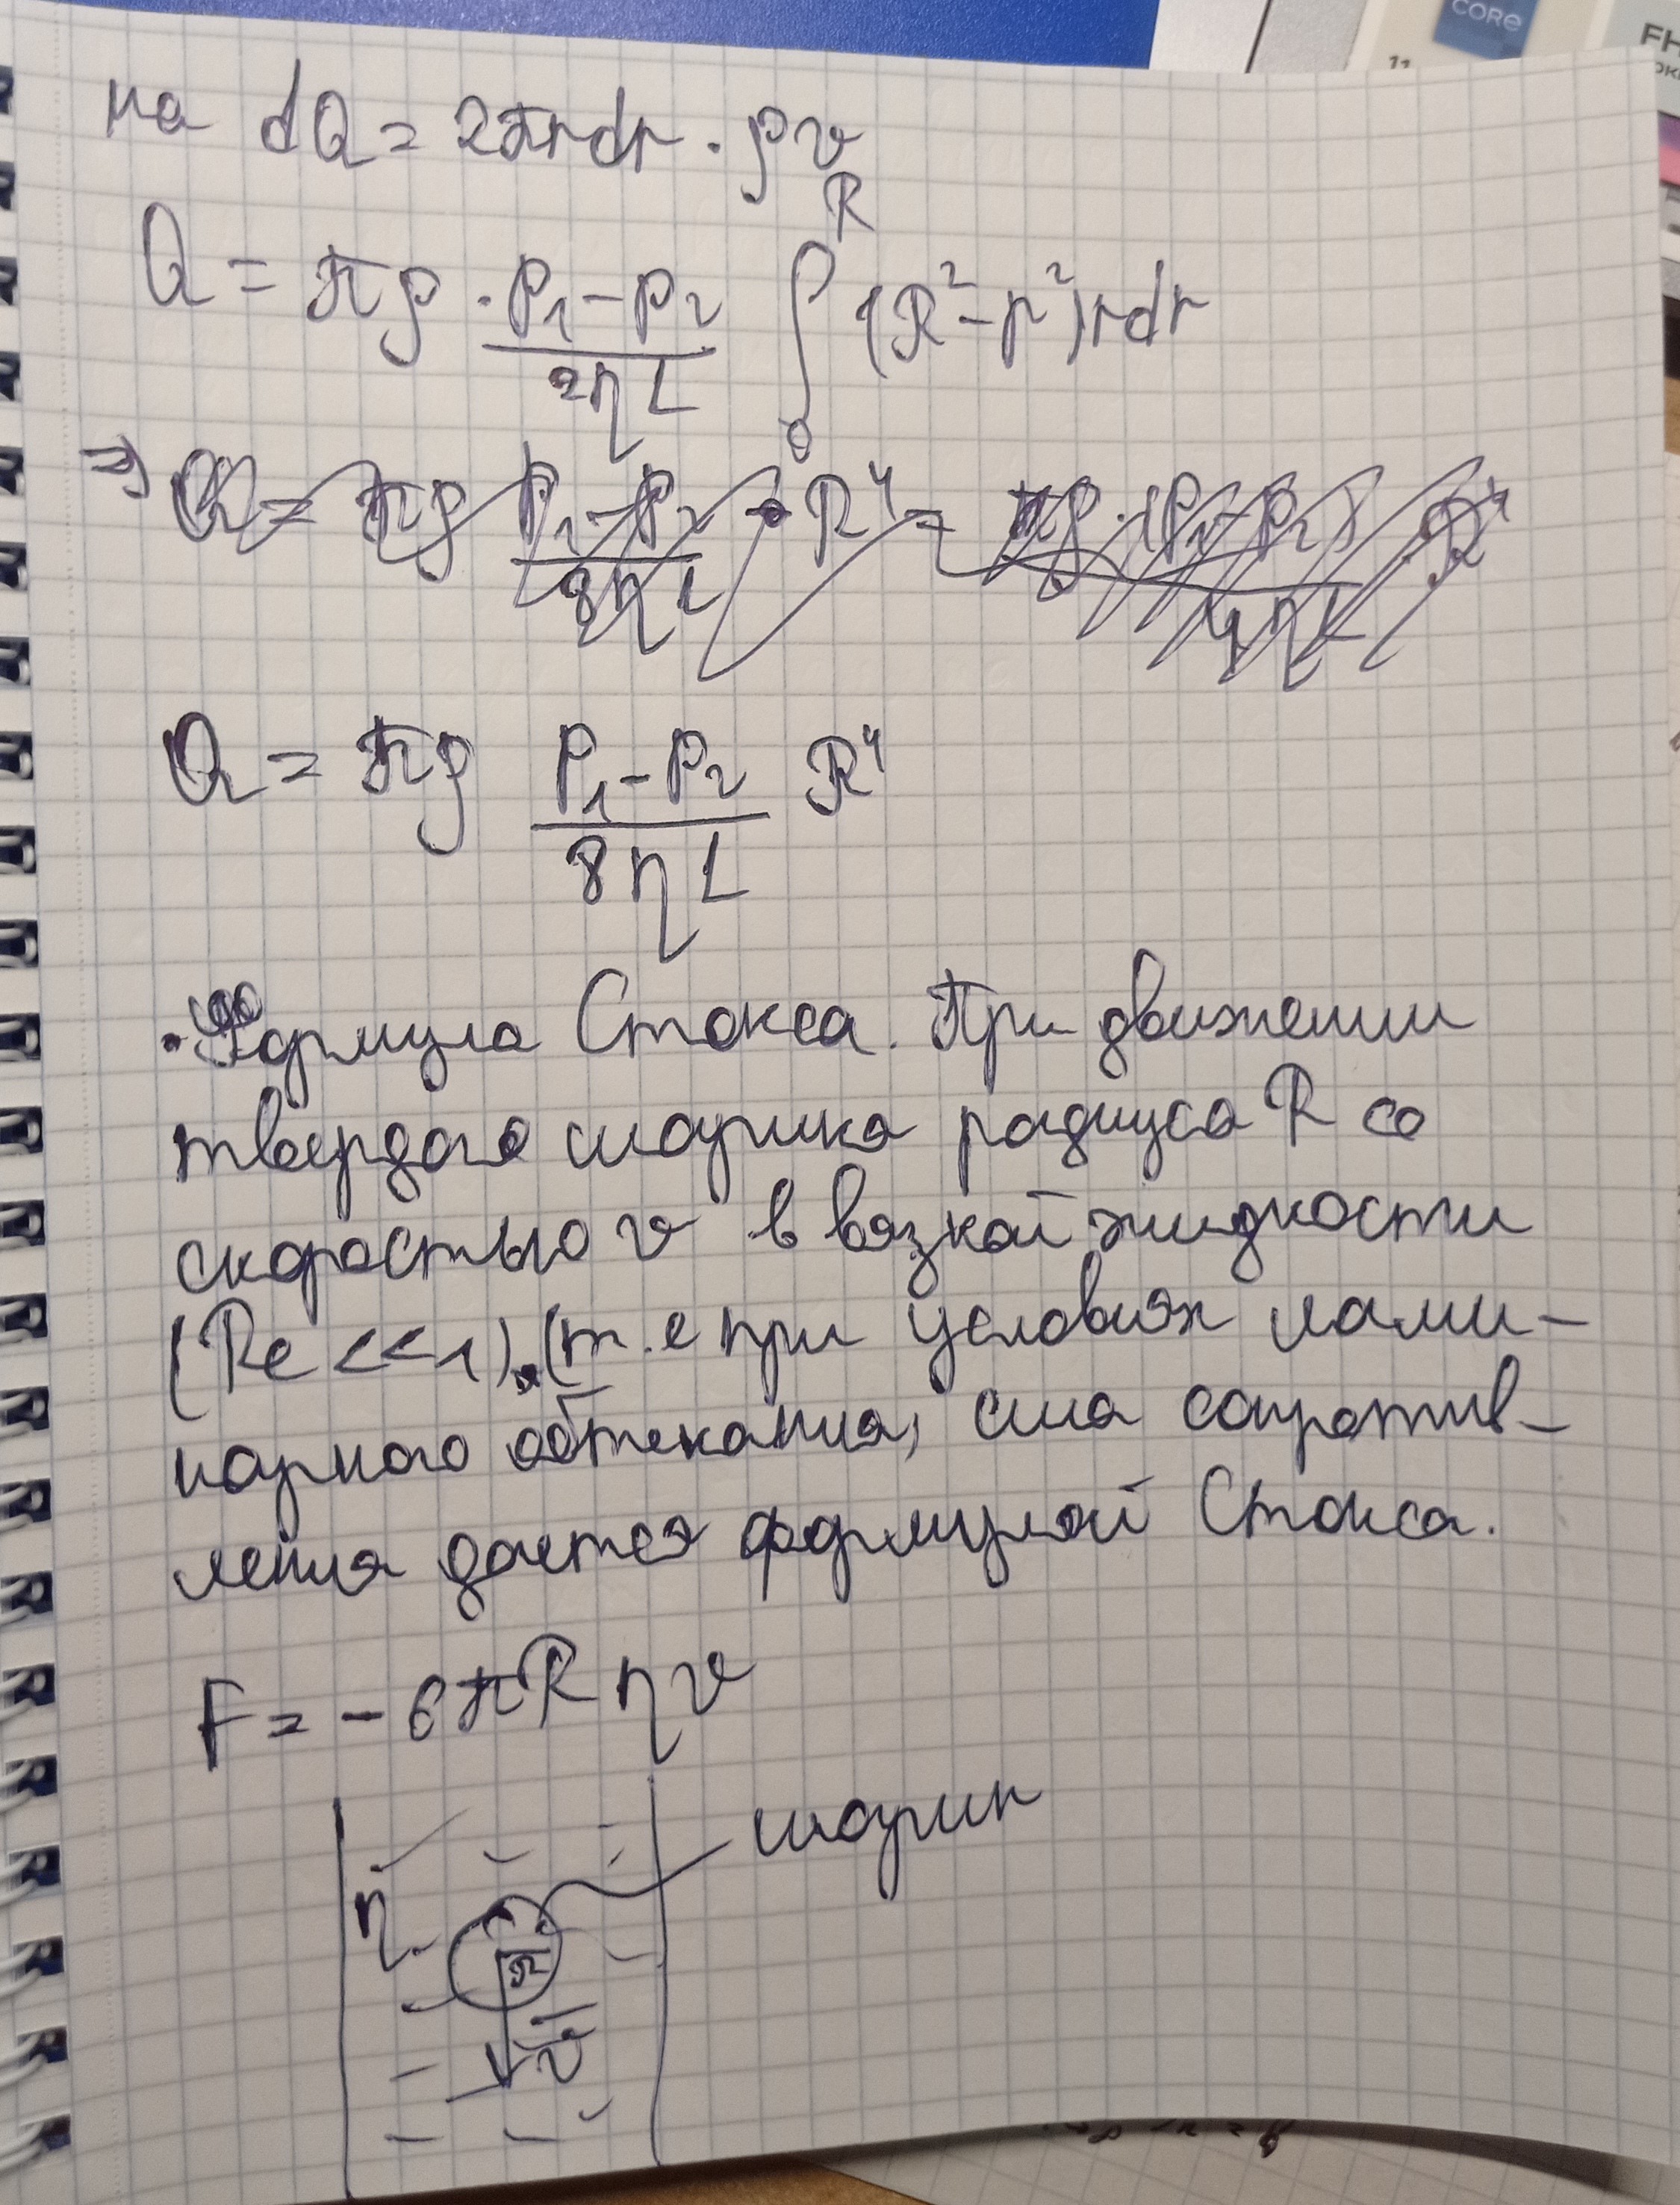 CORE
11
FH
на dQ = 2πrdr · ρv
Q = πρ · (P₁ - P₂)/(2ηL) ∫₀ᴿ (R² - r²)rdr
⇒ Q = πρ (P₁ - P₂)/(8ηL) · R⁴ = πρ · (P₁ - P₂)/(4ηL) · R⁴
Q = πρ (P₁ - P₂)/(8ηL) R⁴
· Формула Стокса. При движении
твердого шарика радиуса R со
скоростью v в вязкой жидкости
(Re <<1), (т.е при условиях лами-
нарного обтекания, сила сопротив-
ления дается формулой Стокса.
F = - 6πRηv
шарик
η
R
v